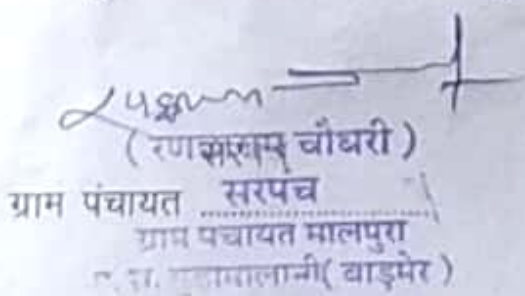 (रणछाराम चौधरी)
ग्राम पंचायत सरपंच
ग्राम पंचायत मालपुरा
(वाड़मेर)